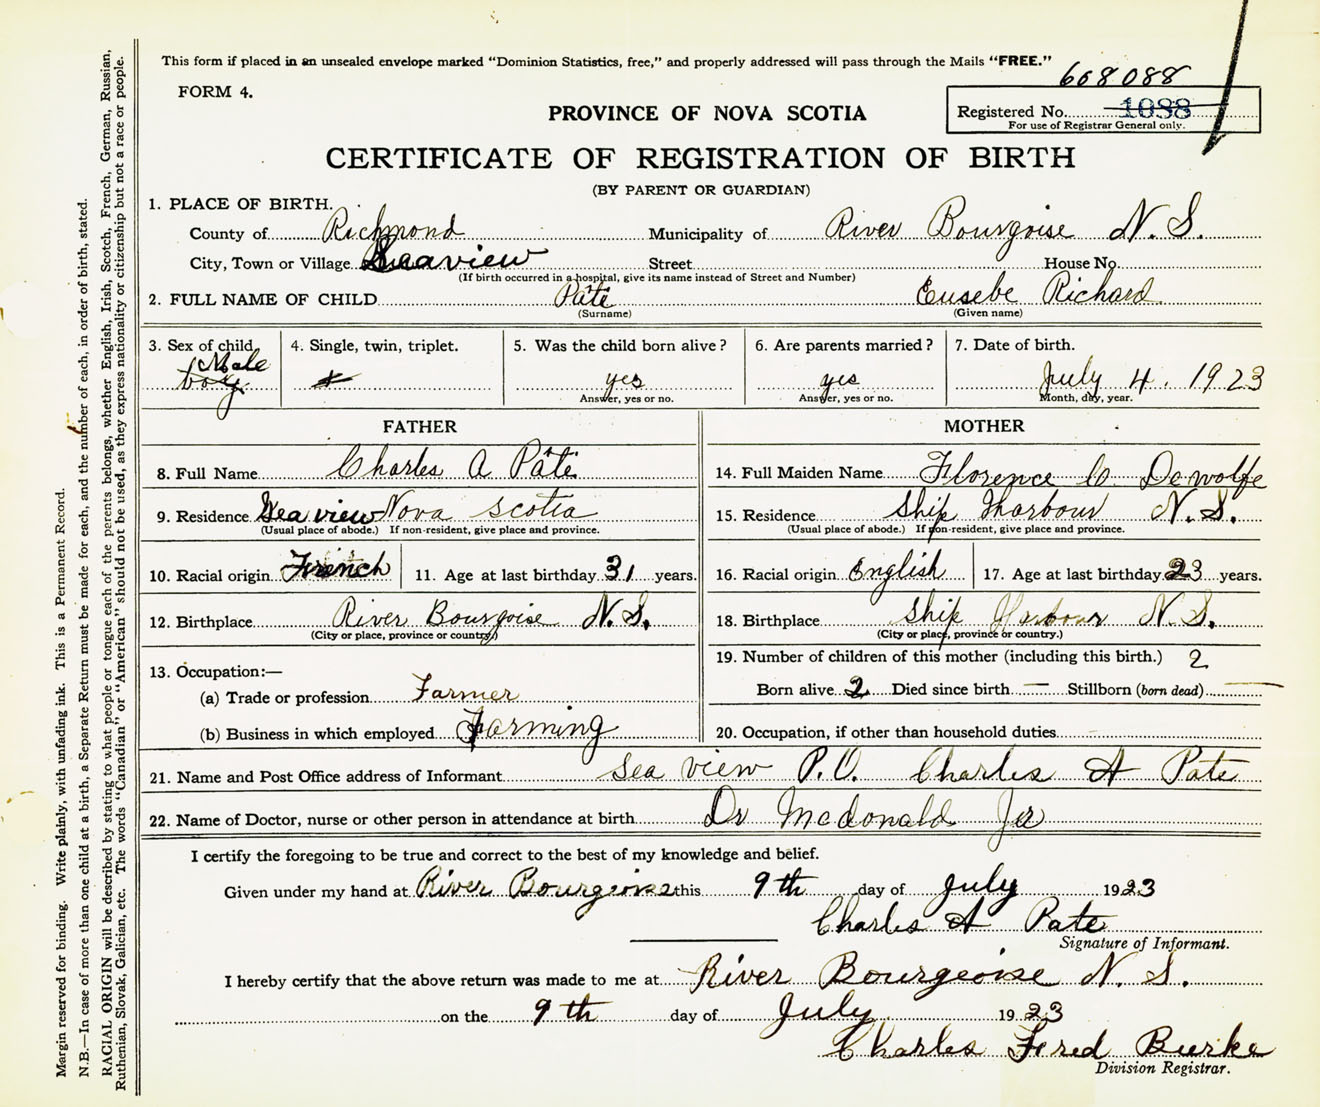 This form if placed in an unsealed envelope marked "Dominion Statistics, free," and properly addressed will pass through the Mails "FREE."
668088
FORM 4.
PROVINCE OF NOVA SCOTIA
Registered No. 1088
For use of Registrar General only.
CERTIFICATE OF REGISTRATION OF BIRTH
(BY PARENT OR GUARDIAN)
1. PLACE OF BIRTH.
County of Richmond Municipality of River Bourgoise N. S.
City, Town or Village Seaview Street House No.
(If birth occurred in a hospital, give its name instead of Street and Number)
2. FULL NAME OF CHILD Pâté Eusebe Richard
(Surname) (Given name)
3. Sex of child. 4. Single, twin, triplet. 5. Was the child born alive? 6. Are parents married? 7. Date of birth.
Male
boy yes yes July 4. 1923
Answer, yes or no. Answer, yes or no. Month, day, year.
FATHER MOTHER
8. Full Name Charles A Pâté 14. Full Maiden Name Florence Dewolfe
9. Residence Sea view Nova Scotia 15. Residence Ship Harbour N.S.
(Usual place of abode.) If non-resident, give place and province. (Usual place of abode.) If non-resident, give place and province.
10. Racial origin French 11. Age at last birthday 31 years. 16. Racial origin English 17. Age at last birthday 23 years.
12. Birthplace River Bourgoise N.S. 18. Birthplace Ship Harbour N.S.
(City or place, province or country) (City or place, province or country.)
13. Occupation:— 19. Number of children of this mother (including this birth.) 2
(a) Trade or profession Farmer Born alive 2 Died since birth — Stillborn (born dead) —
(b) Business in which employed Farming 20. Occupation, if other than household duties
21. Name and Post Office address of Informant Sea view P.O. Charles A Pate
22. Name of Doctor, nurse or other person in attendance at birth Dr Mcdonald
I certify the foregoing to be true and correct to the best of my knowledge and belief.
Given under my hand at River Bourgeoise this 9th day of July 1923
Charles A Pate
Signature of Informant.
I hereby certify that the above return was made to me at River Bourgeoise N. S.
on the 9th day of July 1923
Charles Fred Burke
Division Registrar.
Margin reserved for binding. Write plainly, with unfading ink. This is a Permanent Record.
N.B.—In case of more than one child at a birth, a Separate Return must be made for each, and the number of each, in order of birth, stated.
RACIAL ORIGIN will be described by stating to what people or tongue each of the parents belongs, whether English, Irish, Scotch, French, German, Russian,
Ruthenian, Slovak, Galician, etc. The words "Canadian" or "American" should not be used, as they express nationality or citizenship but not a race or people.